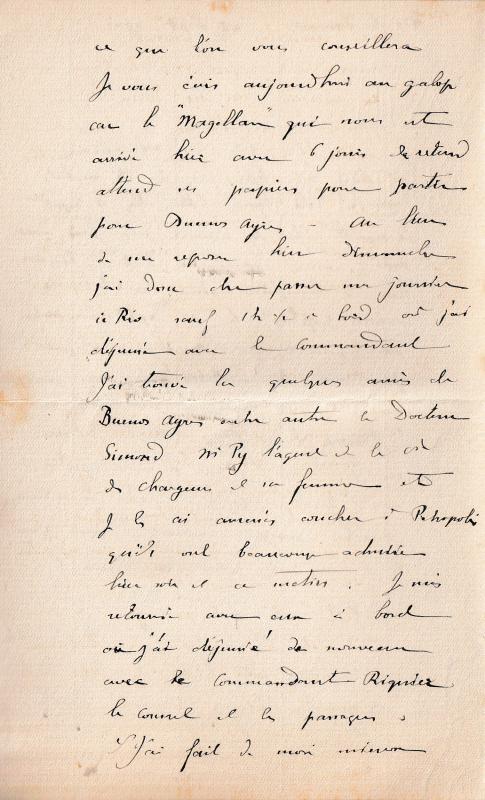 ce que l'on vous conseillera
Je vous écris aujourd'hui au galop
car le "Magellan" qui nous est
arrivé hier avec 6 jours de retard
attend ses papiers pour partir
pour Buenos Ayres – au lieu
de me reposer hier dimanche
j'ai donc dû passer ma journée
à Rio sauf 1h ½ à bord où j'ai
déjeuné avec le commandant
J'ai trouvé là quelques amis de
Buenos Ayres entre autre le Docteur
Simond Mr Py l'agent de la cie
des chargeurs et sa femme etc
Je les ai amenés coucher à Petropolis
qu'ils ont beaucoup admiré
hier soir et ce matin. Je suis
retourné avec eux à bord
où j'ai déjeuné de nouveau
avec le commandant Riquier
le consul et les passagers
J'ai fait de mon mieux